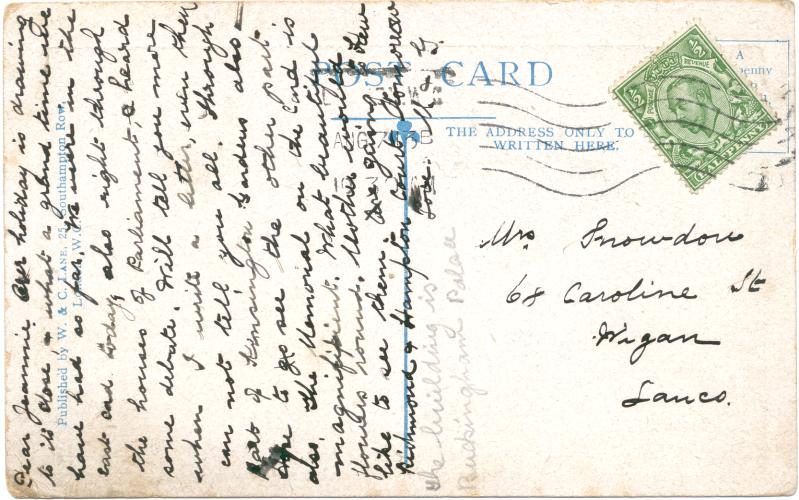 POST CARD
THE ADDRESS ONLY TO
WRITTEN HERE.
A
penny
½
½
POSTAGE
REVENUE
HALFPENNY
AUG
Mrs Snowdon
68 Caroline St
Wigan
Lancs.
Published by W. & C. LANE, 25, Southampton Row,
London, W.C.
Dear Jeannie. Our holiday is drawing
to its close & what a grand time we
have had so far. We were in the
east end today, also right through
the houses of Parliament & heard
some debate. Will tell you more
when I write a letter, even then
can not tell you all. Through
part of Kensington Gardens also
to go see the other part
also. the Memorial on the Card is
magnifficent. What beautiful
flowers round. Mother would
like to see them. Are going to Kew
Richmond & Hampton Court tomorrow
Love
the building is
Buckingham Palace